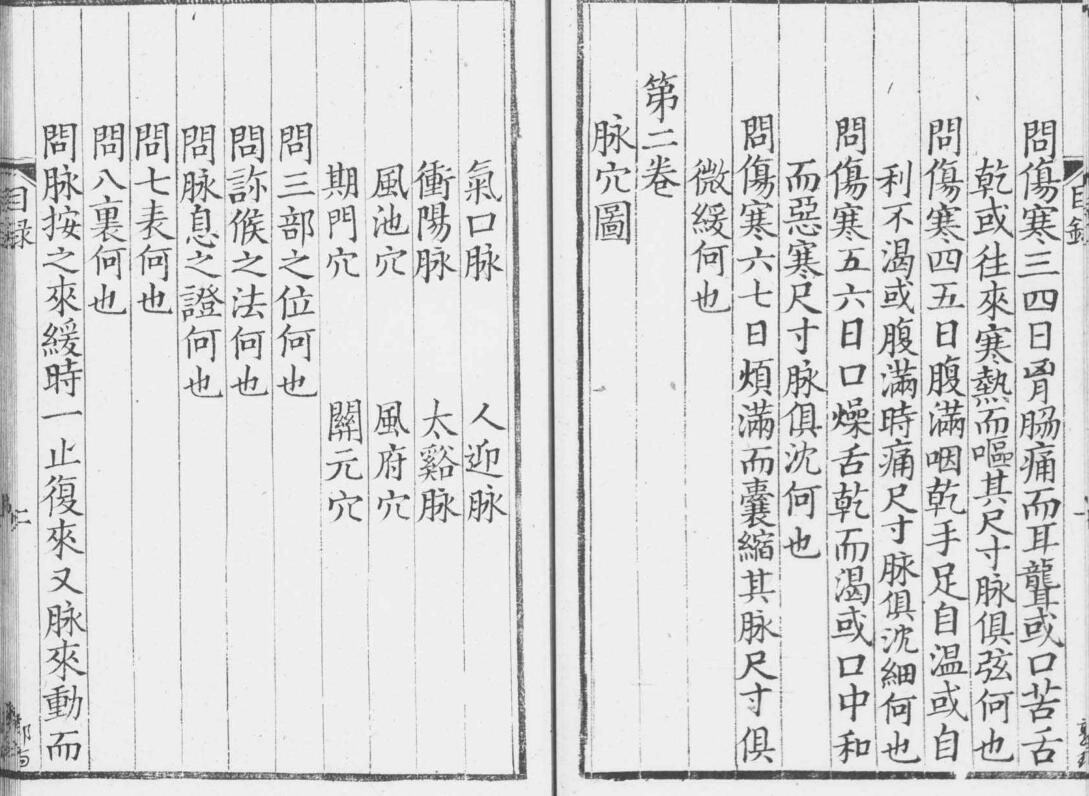 問傷寒三四日胷脇痛而耳聾或口苦舌
乾或往來寒熱而嘔其尺寸脉俱弦何也
問傷寒四五日腹滿咽乾手足自温或自
利不渴或腹滿時痛尺寸脉俱沈細何也
問傷寒五六日口燥舌乾而渴或口中和
而惡寒尺寸脉俱沈何也
問傷寒六七日煩滿而囊縮其脉尺寸俱
微緩何也
第二卷
脉穴圖
氣口脉 人迎脉
衝陽脉 太谿脉
風池穴 風府穴
期門穴 關元穴
問三部之位何也
問訡候之法何也
問脉息之證何也
問七表何也
問八裏何也
問脉按之來緩時一止復來又脉來動而
目録
二